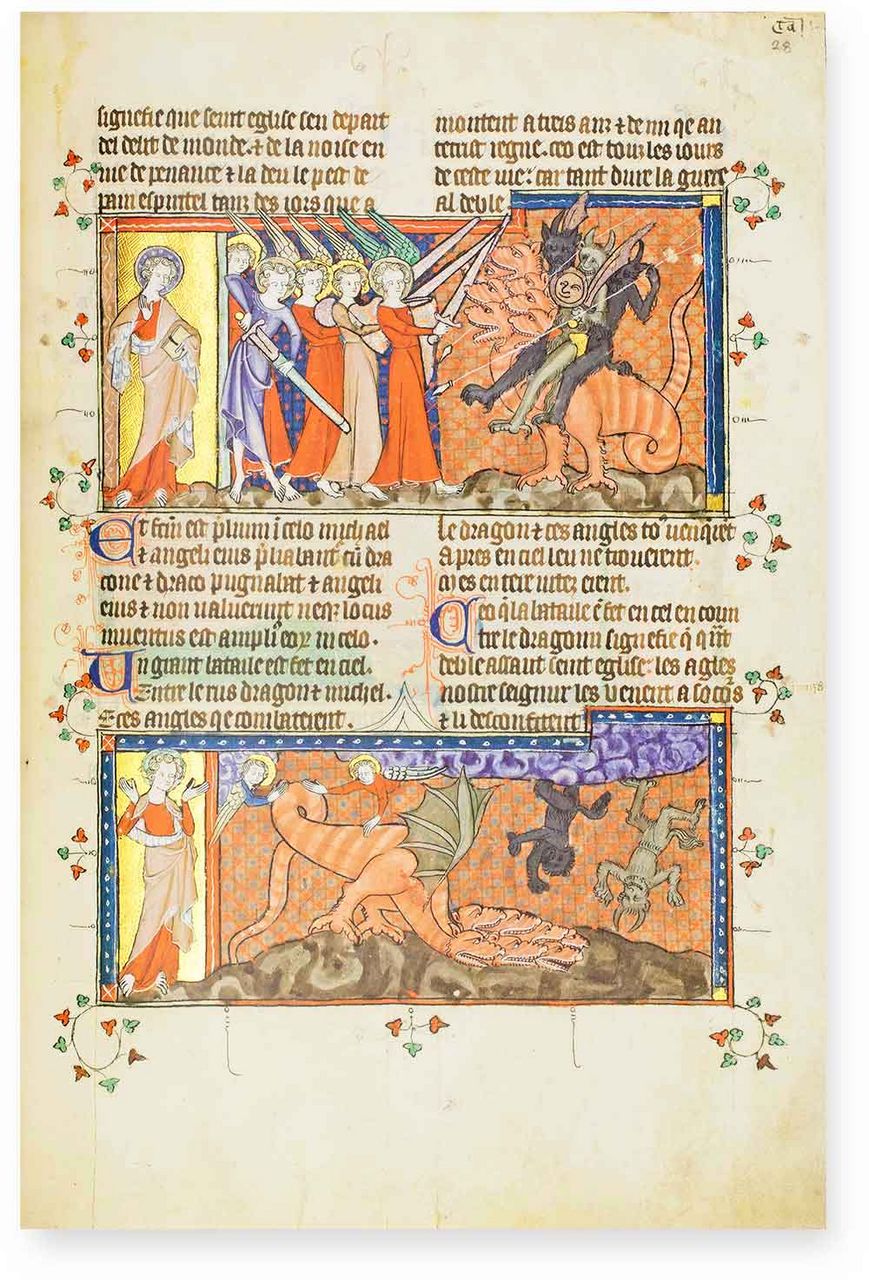 signefie que seint eglise sen depart
del delit de monde. ⁊ de la noise en
vie de penance ⁊ la deu le pest de
pain espiritel tanz des iors que a
montent a treis anz ⁊ demi qe an
tecrist regne. ceo est touz les iours
de ceste vie: car tant dure la guere
al deble
Et factū est p̄lium ī celo michael
⁊ angeli eius p̄liabant᷑ cū dra
cone ⁊ draco pugnabat ⁊ angeli
eius ⁊ non ualuerunt neqꝫ locus
inuentus est ampliꝰ eoꝝ in celo.
Un grant bataile est fet en ciel.
Entre le rus dragon ⁊ michel.
E ces angles qe combaterent.
le dragon ⁊ ces angles toꝰ uenquet
apres en ciel leu ne trouerent.
en tere
Ceo q̄ la bataile ē fet en cel en coun
tre le dragoun signefie q̄ q̄nt
deble assaut seint eglise: les āgles
nostre seignur les venent a socōs
⁊ li desconfitent
28